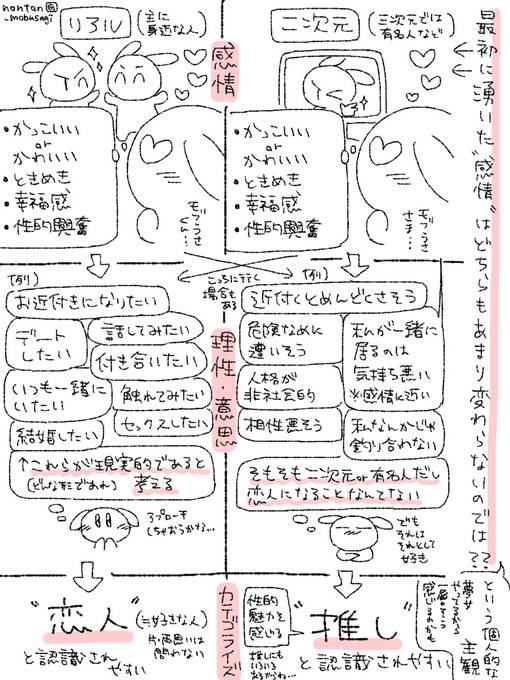 nontan
-mobusagi
リアル
(主に
身近な人)
二次元
(三次元では
有名人など)
感情
最初に湧いた"感情"はどちらもあまり変わらないのでは??
という個人的な
主観
・かっこいい
or
かわいい
・ときめき
・幸福感
・性的興奮
モブうさ
くん…
・かっこいい
or
かわいい
・ときめき
・幸福感
・性的興奮
モブうさ
さま…
こっちに行く
場合も
ある
理性・意思
(例)
お近付きになりたい
デート
したい
話してみたい
付き合いたい
いつも一緒に
いたい
触れてみたい
結婚したい
セックスしたい
↑これらが現実的であると
(どんな形であれ) 考える
アプローチ
しちゃおうかな…
(例)
近付くとめんどくさそう
危険なめに
遭いそう
私が一緒に
居るのは
気持ち悪い
※感情に近い
人格が
非社会的
相性悪そう
私なんかじゃ
釣り合わない
そもそも二次元or有名人だし
恋人になることなんてない
でも
それは
それとして
好き
カテゴライズ
"恋人"
(≒好きな人)
片・両思いは
問わない
と認識され
やすい
性的
魅力を
感じる
推しにも
いろいろ
あるからね…
"推し"
と認識されやすい